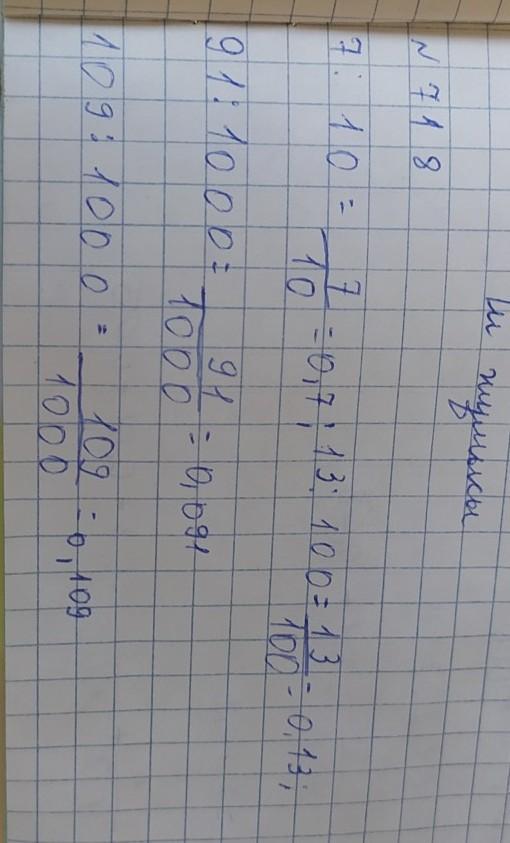 N 718
7 : 10 = 7/10 = 0,7; 13 : 100 = 13/100 = 0,13;
91 : 1000 = 91/1000 = 0,091
109 : 1000 = 109/1000 = 0,109